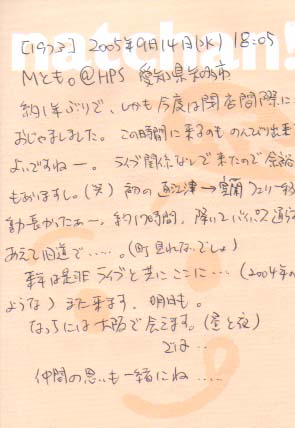 natchan!
[1973] 2005年9月14日(水) 18:05
Mとも。@HPS 愛知県知多市
約1年ぶりで、しかも今度は閉店間際に
おじゃましました。この時間に来るのも のんびり出来て
よいですねー。ライブ関係なしで来たので 余裕
もありますし。(笑) 初の 直江津→室蘭 フェリー移
動長かったぁー。約17時間。降りてバイパス通らず
あえて旧道で‥‥‥。(町 見れないでしょ)
来年は是非 ライブと共に ここに‥‥ (2004年の
ような) また来ます。明日も。
なっちには大阪で会えます。(昼と夜)
では‥
仲間の思いも一緒にね ‥‥‥